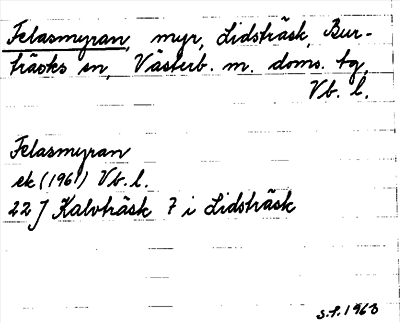 Felasmyran, myr, Lidsträsk, Bur-
träsks sn, Västerb. m. doms. tg,
Vb. l.
Felasmyran
ek (1961) Vb. l.
22J Kalvträsk 7 i Lidsträsk
S.P. 1963